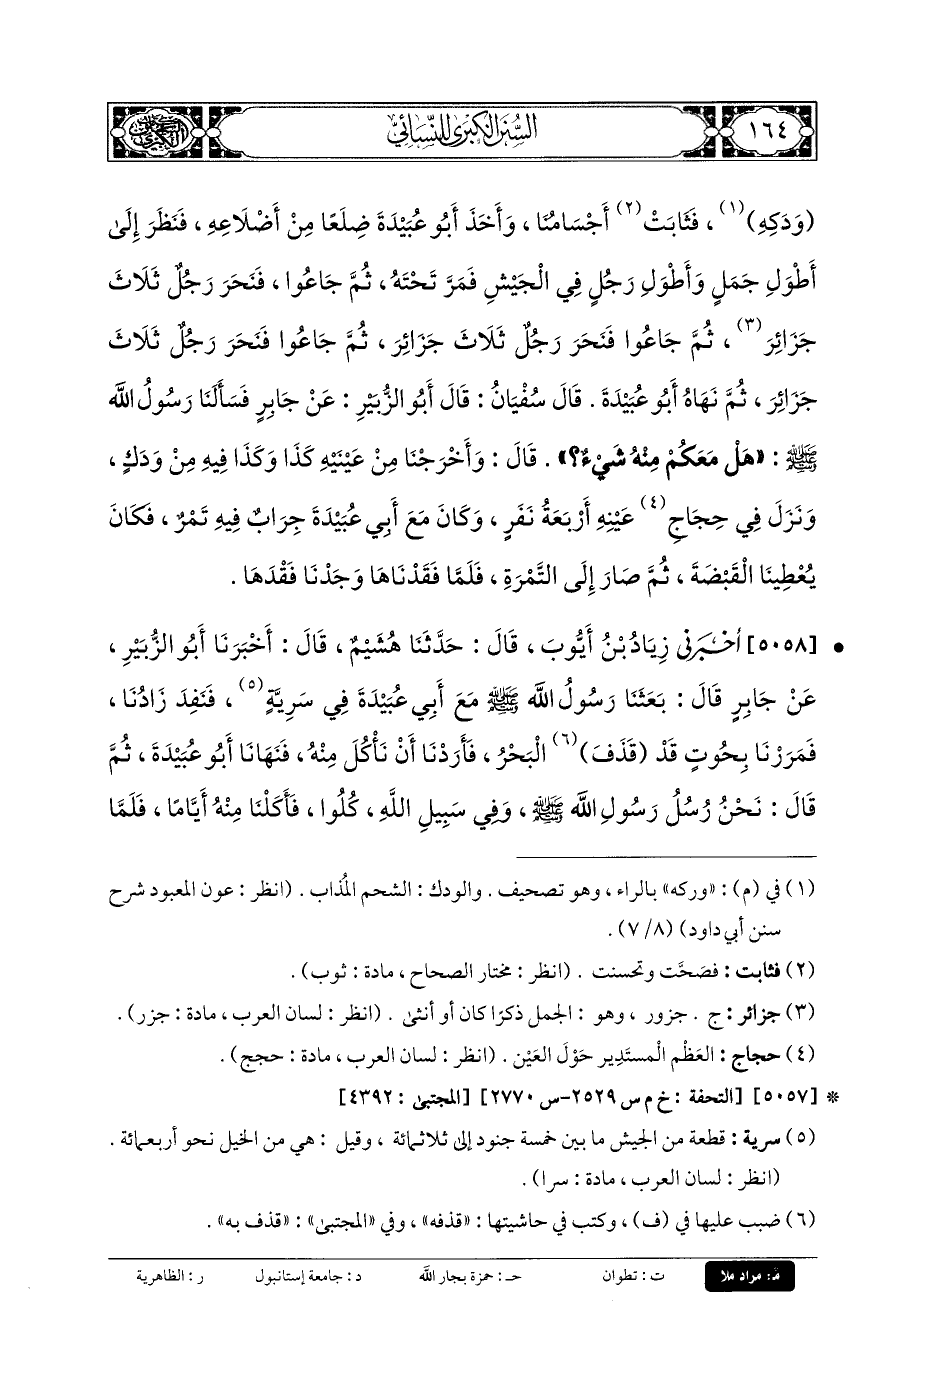 ١٦٤
السنن الكبرى للنسائي
(وَدَكِهِ)(١) ، فَثَابَتْ(٢) أَجْسَامُنَا ، وَأَخَذَ أَبُو عُبَيْدَةَ ضِلَعًا مِنْ أَضْلَاعِهِ ، فَنَظَرَ إِلَىٰ
أَطْوَلِ جَمَلٍ وَأَطْوَلِ رَجُلٍ فِي الْجَيْشِ فَمَرَّ تَحْتَهُ ، ثُمَّ جَاعُوا ، فَنَحَرَ رَجُلٌ ثَلَاثَ
جَزَائِرَ(٣) ، ثُمَّ جَاعُوا فَنَحَرَ رَجُلٌ ثَلَاثَ جَزَائِرَ ، ثُمَّ جَاعُوا فَنَحَرَ رَجُلٌ ثَلَاثَ
جَزَائِرَ ، ثُمَّ نَهَاهُ أَبُو عُبَيْدَةَ . قَالَ سُفْيَانُ : قَالَ أَبُو الزُّبَيْرِ : عَنْ جَابِرٍ فَسَأَلَنَا رَسُولُ اللَّه
ﷺ : «هَلْ مَعَكُمْ مِنْهُ شَيْءٌ؟» . قَالَ : وَأَخْرَجْنَا مِنْ عَيْنَيْهِ كَذَا وَكَذَا فِيهِ مِنْ وَدَكٍ ،
وَنَزَلَ فِي حِجَاجِ(٤) عَيْنِهِ أَرْبَعَةُ نَفَرٍ ، وَكَانَ مَعَ أَبِي عُبَيْدَةَ جِرَابٌ فِيهِ تَمْرٌ ، فَكَانَ
يُعْطِينَا الْقَبْضَةَ ، ثُمَّ صَارَ إِلَى التَّمْرَةِ ، فَلَمَّا فَقَدْنَاهَا وَجَدْنَا فَقْدَهَا .
• [٥٠٥٨] أَخْبَرَنِي زِيَادُ بْنُ أَيُّوبَ ، قَالَ : حَدَّثَنَا هُشَيْمٌ ، قَالَ : أَخْبَرَنَا أَبُو الزُّبَيْرِ ،
عَنْ جَابِرٍ قَالَ : بَعَثَنَا رَسُولُ اللَّه ﷺ مَعَ أَبِي عُبَيْدَةَ فِي سَرِيَّةٍ(٥) ، فَنَفِدَ زَادُنَا ،
فَمَرَرْنَا بِحُوتٍ قَدْ (قَذَفَ)(٦) الْبَحْرُ ، فَأَرَدْنَا أَنْ نَأْكُلَ مِنْهُ ، فَنَهَانَا أَبُو عُبَيْدَةَ ، ثُمَّ
قَالَ : نَحْنُ رُسُلُ رَسُولِ اللَّه ﷺ ، وَفِي سَبِيلِ اللَّهِ ، كُلُوا ، فَأَكَلْنَا مِنْهُ أَيَّامًا ، فَلَمَّا
(١) في (م) : «وركه» بالراء ، وهو تصحيف . والودك : الشحم المُذاب . (انظر : عون المعبود شرح
سنن أبي داود) (٧/٨) .
(٢) فثابت : فصَحَّت وتحسنت . (انظر : مختار الصحاح ، مادة : ثوب) .
(٣) جزائر : ج . جزور ، وهو : الجمل ذكرًا كان أو أنثى . (انظر : لسان العرب ، مادة : جزر) .
(٤) حجاج : العَظْم الْمستَدِير حَوْلَ العَيْن . (انظر : لسان العرب ، مادة : حجج) .
* [٥٠٥٧] [التحفة : خ م س ٢٥٢٩-س ٢٧٧٠] [المجتبى : ٤٣٩٢]
(٥) سرية : قطعة من الجيش ما بين خمسة جنود إلى ثلاثمائة ، وقيل : هي من الخيل نحو أربعمائة .
(انظر : لسان العرب ، مادة : سرا) .
(٦) ضبب عليها في (ف) ، وكتب في حاشيتها : «قذفه» ، وفي «المجتبى» : «قذف به» .
مـ: مراد ملا ت : تطوان حـ : حمزة بجار اللَّه د : جامعة إستانبول ر : الظاهرية